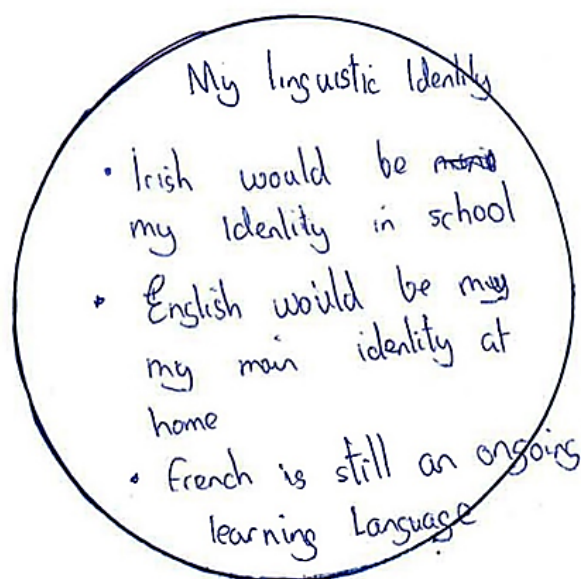 My linguistic Identity
• Irish would be
my Identity in school
• English would be
my main identity at
home
• French is still an ongoing
learning Language